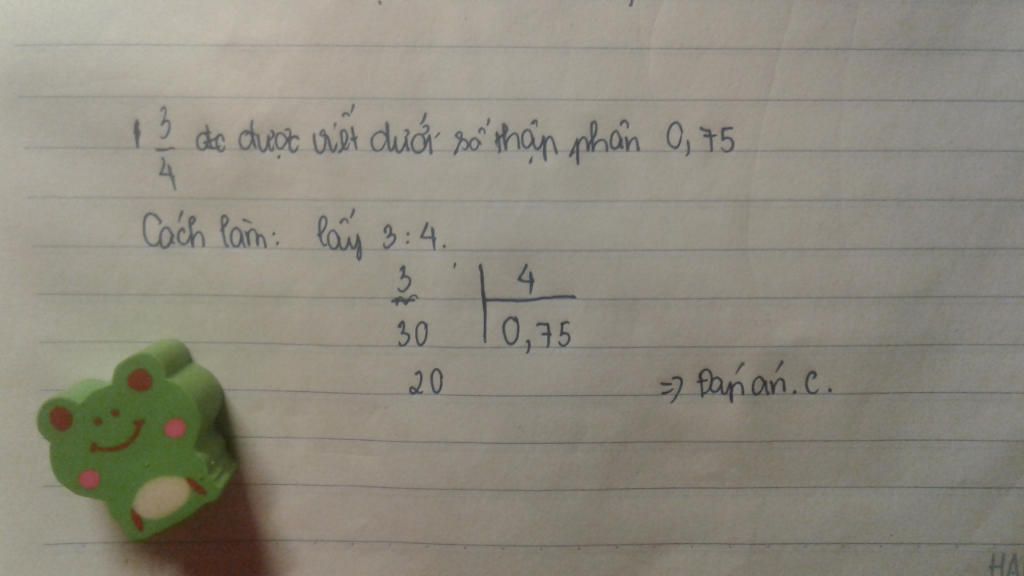 1 3/4 đc được viết dưới số thập phân 0,75
Cách làm: lấy 3:4.
3 | 4
30 | 0,75
20 => Đáp án. C.
HA